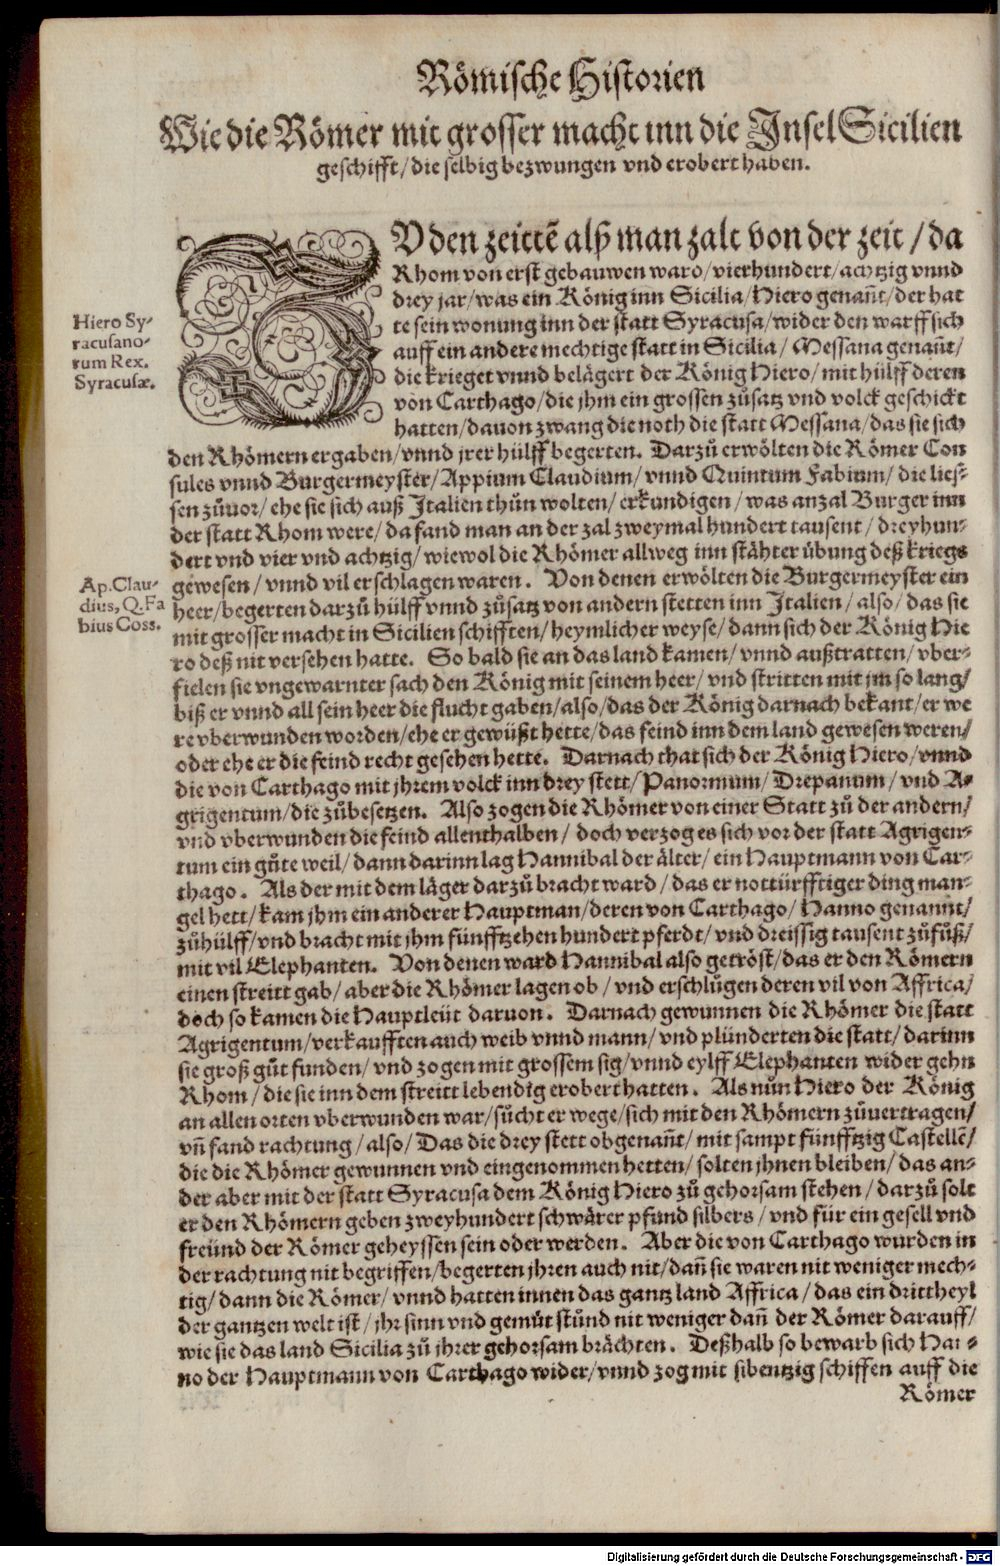 Römische Historien
Wie die Römer mit grosser macht inn die Insel Sicilien
geschifft/ die selbig bezwungen vnd erobert haben.
ZV den zeittẽ alß man zalt von der zeit/ da
Rhom von erst gebauwen ward/ vierhundert/ achtzig vnnd
drey jar/ was ein König inn Sicilia/ Hiero genañt/ der hat
te sein wonung inn der statt Syracusa/ wider den warff sich
auff ein andere mechtige statt in Sicilia/ Messana genañt/
die krieget vnnd belägert der König Hiero/ mit hülff deren
von Carthago/ die jhm ein grossen zůsatz vnd volck geschickt
hatten/ dauon zwang die noth die statt Messana/ das sie sich
den Rhömern ergaben/ vnnd jrer hülff begerten. Darzů erwölten die Römer Con
sules vnnd Burgermeyster/ Appium Claudium/ vnnd Quintum Fabium/ die lies-
sen zůuor/ ehe sie sich auß Italien thůn wolten/ erkundigen/ was anzal Burger inn
der statt Rhom were/ da fand man an der zal zweymal hundert tausent/ dreyhun-
dert vnd vier vnd achtzig/ wiewol die Rhömer allweg inn stähter übung deß kriegs
gewesen/ vnnd vil erschlagen waren. Von denen erwölten die Burgermeyster ein
heer/ begerten darzů hülff vnnd zůsatz von andern stetten inn Italien/ also/ das sie
mit grosser macht in Sicilien schifften/ heymlicher weyse/ dann sich der König Hie
ro deß nit versehen hatte. So bald sie an das land kamen/ vnnd außtratten/ vber-
fielen sie vngewarnter sach den König mit seinem heer/ vnd stritten mit jm so lang/
biß er vnnd all sein heer die flucht gaben/ also/ das der König darnach bekant/ er we
re vberwunden worden/ ehe er gewüßt hette/ das feind inn dem land gewesen weren/
oder ehe er die feind recht gesehen hette. Darnach that sich der König Hiero/ vnnd
die von Carthago mit jhrem volck inn drey stett/ Panormum/ Drepanum/ vnd A-
grigentum/ die zůbesetzen. Also zogen die Rhömer von einer Statt zů der andern/
vnd vberwunden die feind allenthalben/ doch verzog es sich vor der statt Agrigen-
tum ein gůte weil/ dann darinn lag Hannibal der älter/ ein Hauptmann von Car-
thago. Als der mit dem läger darzů bracht ward/ das er nottürfftiger ding man-
gel hett/ kam jhm ein anderer Hauptman/ deren von Carthago/ Hanno genannt/
zůhülff/ vnd bracht mit jhm fünfftzehen hundert pferdt/ vnd dreissig tausent zůfůß/
mit vil Elephanten. Von denen ward Hannibal also getröst/ das er den Römern
einen streitt gab/ aber die Rhömer lagen ob/ vnd erschlůgen deren vil von Affrica/
doch so kamen die Hauptleüt daruon. Darnach gewunnen die Rhömer die statt
Agrigentum/ verkaufften auch weib vnnd mann/ vnd plünderten die statt/ darinn
sie groß gůt funden/ vnd zogen mit grossem sig/ vnnd eylff Elephanten wider gehn
Rhom/ die sie inn dem streitt lebendig erobert hatten. Als nůn Hiero der König
an allen orten vberwunden war/ sůcht er wege/ sich mit den Rhömern zůuertragen/
vñ fand rachtung/ also/ Das die drey stett obgenañt/ mit sampt fünfftzig Castellẽ/
die die Rhömer gewunnen vnd eingenommen hetten/ solten jhnen bleiben/ das an-
der aber mit der statt Syracusa dem König Hiero zů gehorsam stehen/ darzů solt
er den Rhömern geben zweyhundert schwärer pfund silbers/ vnd für ein gesell vnd
freünd der Römer geheyssen sein oder werden. Aber die von Carthago wurden in
der rachtung nit begriffen/ begerten jhren auch nit/ dañ sie waren nit weniger mech-
tig/ dann die Römer/ vnnd hatten innen das gantz land Affrica/ das ein drittheyl
der gantzen welt ist/ jhr sinn vnd gemüt stůnd nit weniger dañ der Römer darauff/
wie sie das land Sicilia zů jhrer gehorsam brächten. Deßhalb so bewarb sich Han-
no der Hauptmann von Carthago wider/ vnnd zog mit sibentzig schiffen auff die
Römer
Hiero Sy-
racusano-
rum Rex.
Syracusæ.
Ap. Clau-
dius, Q. Fa
bius Coss.
Digitalisierung gefördert durch die Deutsche Forschungsgemeinschaft - DFG